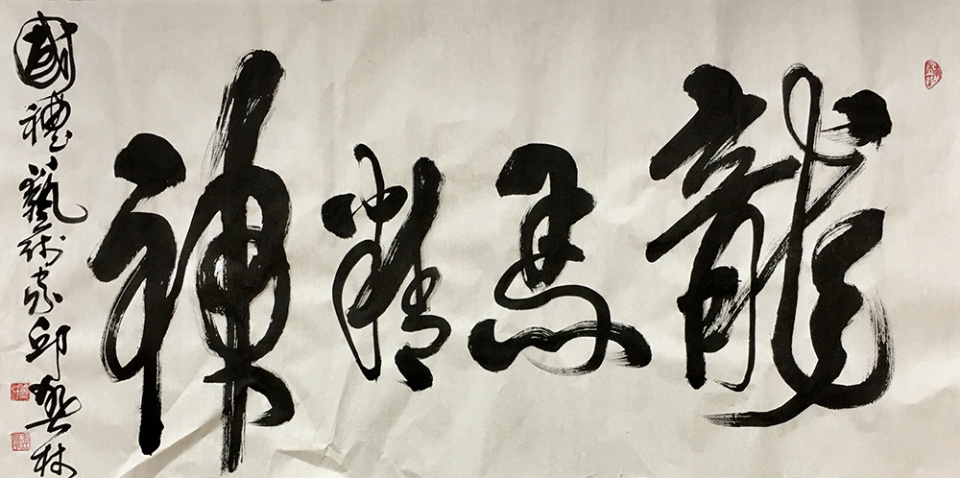 龍馬精神
國禮藝術家邱林